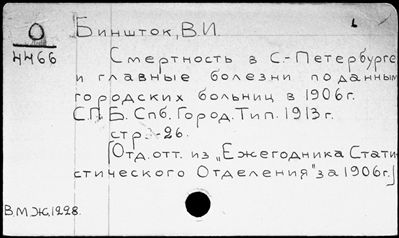 О
4466
Биншток, В.И.
Смертность в С.-Петербурге
и главные болезни по данным
городских больниц в 1906г.
С.П.Б. Спб. Город. Тип. 1913г.
стр.-26.
[Отд. отт. из „Ежегодника Стати-
стического Отделения" за 1906г.]
В.М.Ж,1228.